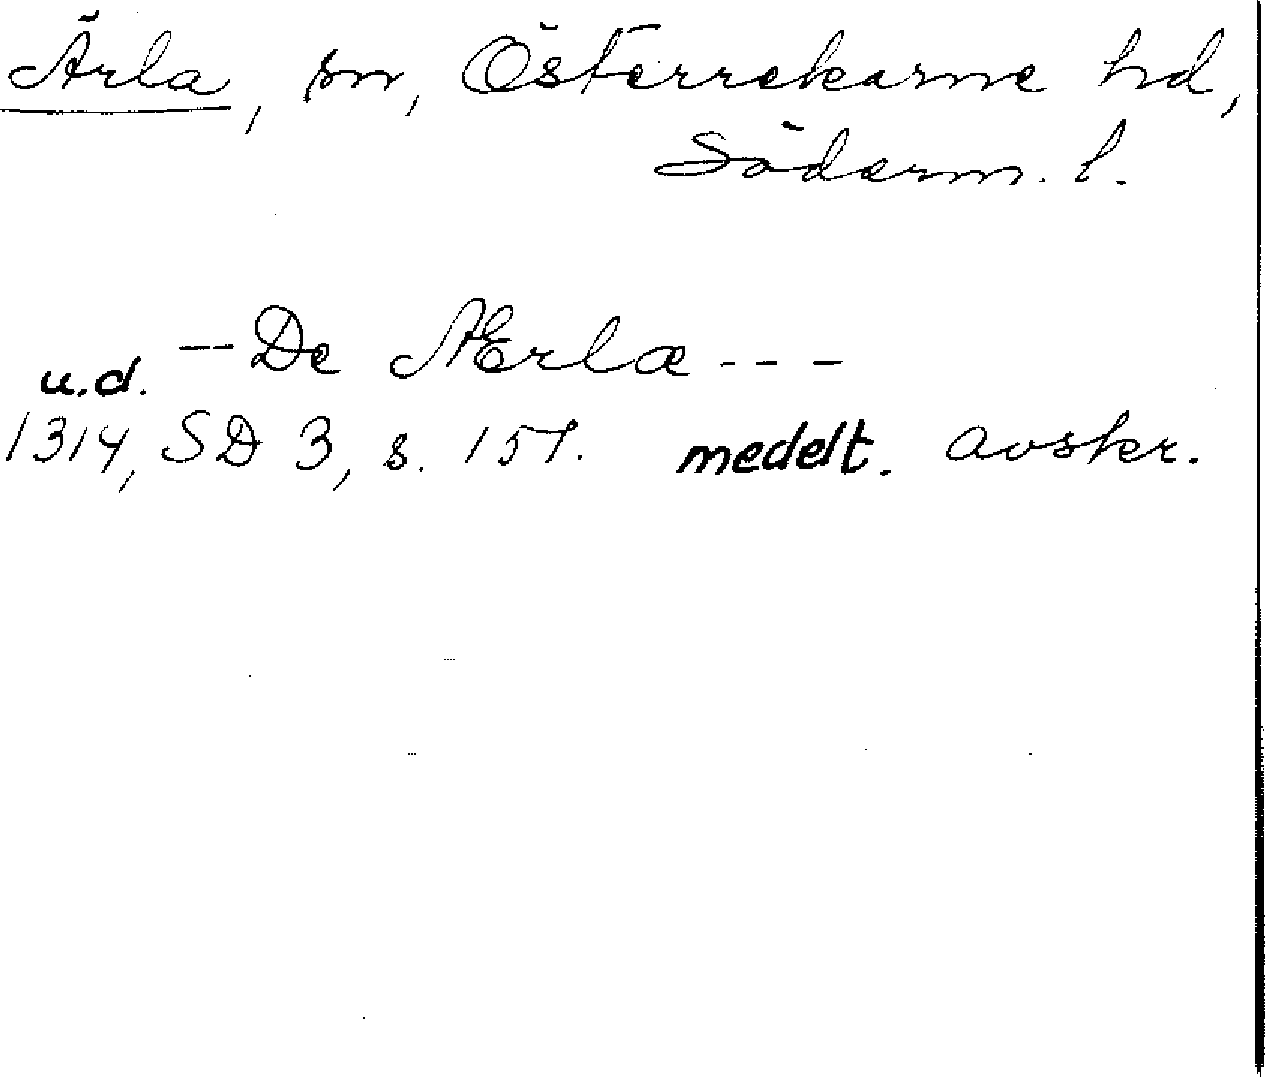 Ärla, sn, Österrekarne hd,
Söderm. l.
-- De Ærla ---
u.d.
1314, SD 3, s. 157. medelt. avskr.